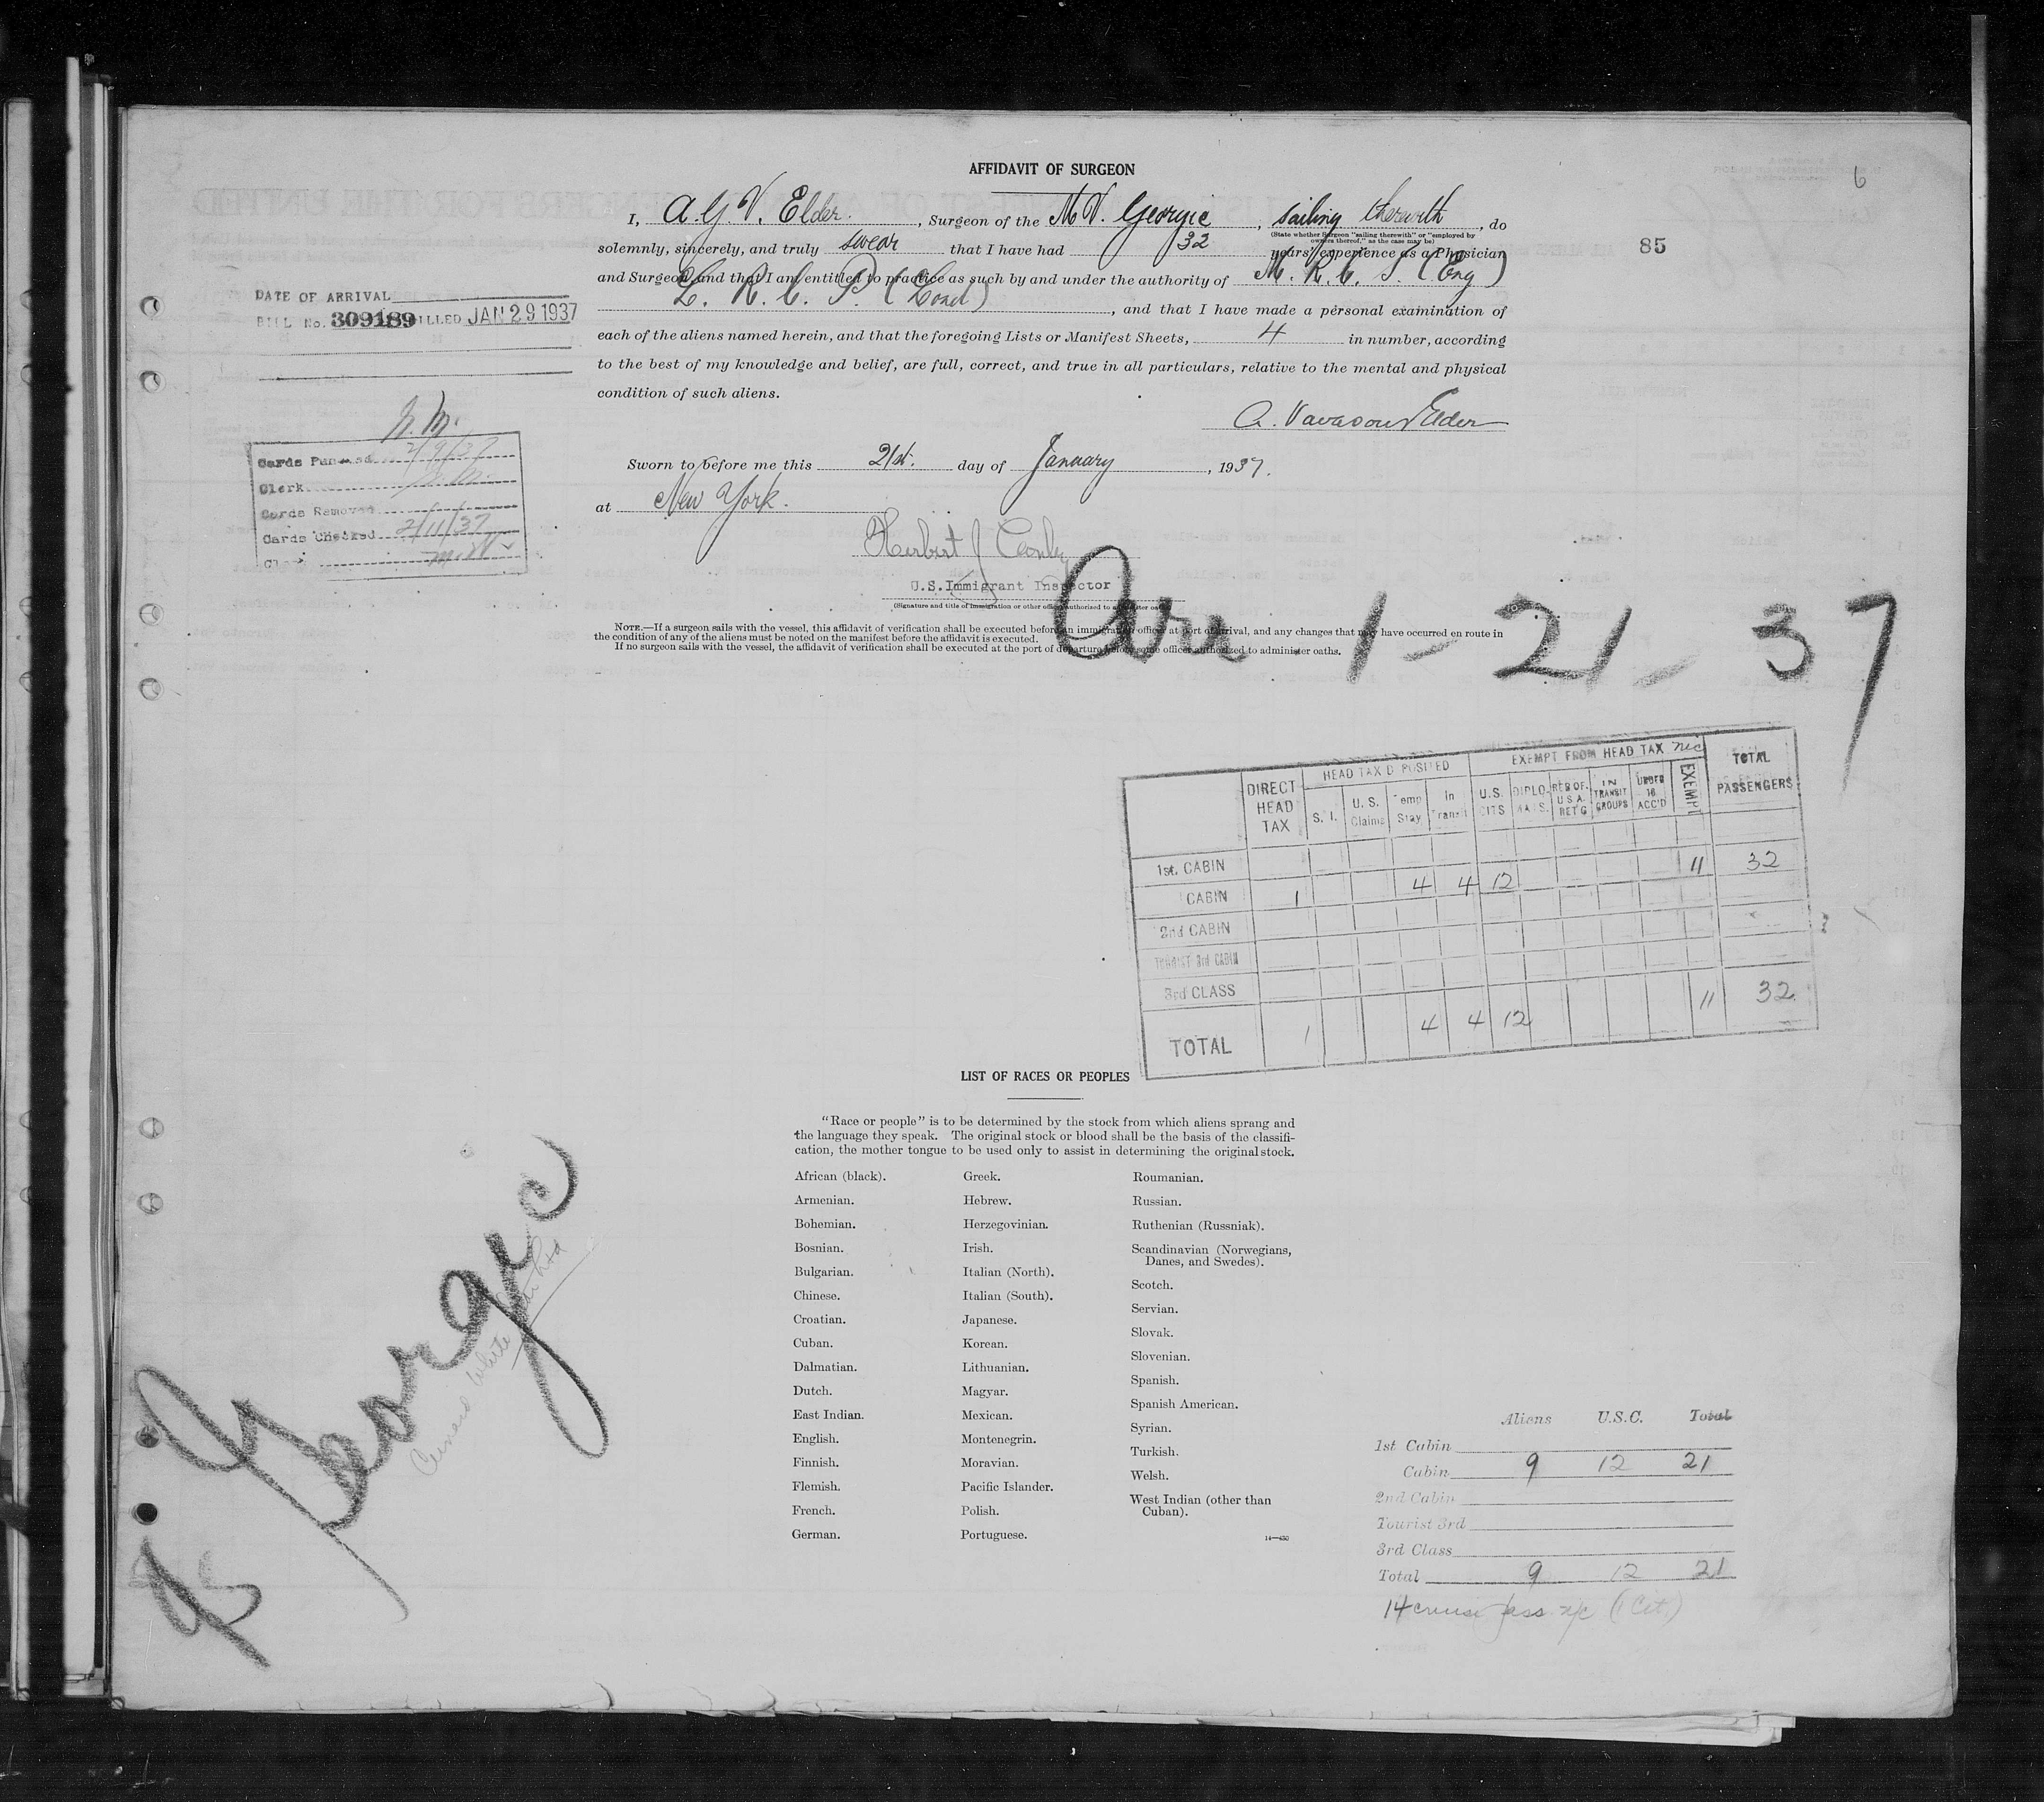 AFFIDAVIT OF SURGEON
6
I, A. G. V. Elder., Surgeon of the M.V. Georgic, sailing therewith, do
(State whether Surgeon "sailing therewith" or "employed by
owners thereof," as the case may be)
solemnly, sincerely, and truly swear that I have had 32 years' experience as a Physician
85
and Surgeon and that I am entitled to practice as such by and under the authority of M. R. C. S. (Eng)
L. R. C. P. (Lond), and that I have made a personal examination of
each of the aliens named herein, and that the foregoing Lists or Manifest Sheets, 4 in number, according
to the best of my knowledge and belief, are full, correct, and true in all particulars, relative to the mental and physical
condition of such aliens.
A. Vavasour Elder
Sworn to before me this 21st. day of January, 1937.
at New York.
Herbert J
U.S. Immigrant Inspector
(Signature and title of immigration or other officer authorized to administer oaths)
NOTE.—If a surgeon sails with the vessel, this affidavit of verification shall be executed before an immigration officer at port of arrival, and any changes that may have occurred en route in
the condition of any of the aliens must be noted on the manifest before the affidavit is executed.
If no surgeon sails with the vessel, the affidavit of verification shall be executed at the port of departure before some officer authorized to administer oaths.
DATE OF ARRIVAL
BILL No. 309189 BILLED JAN 29 1937
Cards Punched 2/9/37
Clerk
Cards Removed
Cards Checked 2/11/37
Clerk
Arr 1-21-37
DIRECT HEAD TAX
HEAD TAX DEPOSITED
EXEMPT FROM HEAD TAX
TOTAL PASSENGERS
S. I.
U. S. Claims
Temp Stay
In Transit
U.S. CITS
DIPLOMATS.
RES OF. U.S.A. RET'G
IN TRANSIT GROUPS
Under 16 ACC'D
EXEMPT
1st. CABIN 11 32
CABIN 1 4 4 12
2nd CABIN
TOURIST 3rd CABIN
3rd CLASS
TOTAL 1 4 4 12 11 32
LIST OF RACES OR PEOPLES
"Race or people" is to be determined by the stock from which aliens sprang and
the language they speak. The original stock or blood shall be the basis of the classifi-
cation, the mother tongue to be used only to assist in determining the original stock.
African (black).
Armenian.
Bohemian.
Bosnian.
Bulgarian.
Chinese.
Croatian.
Cuban.
Dalmatian.
Dutch.
East Indian.
English.
Finnish.
Flemish.
French.
German.
Greek.
Hebrew.
Herzegovinian.
Irish.
Italian (North).
Italian (South).
Japanese.
Korean.
Lithuanian.
Magyar.
Mexican.
Montenegrin.
Moravian.
Pacific Islander.
Polish.
Portuguese.
Roumanian.
Russian.
Ruthenian (Russniak).
Scandinavian (Norwegians,
Danes, and Swedes).
Scotch.
Servian.
Slovak.
Slovenian.
Spanish.
Spanish American.
Syrian.
Turkish.
Welsh.
West Indian (other than
Cuban).
14—430
Georgic
Cunard White Star Ltd
Aliens U.S.C. Total
1st Cabin
Cabin 9 12 21
2nd Cabin
Tourist 3rd
3rd Class
Total 9 12 21
14 cruise pass n/c (1 Cit.)